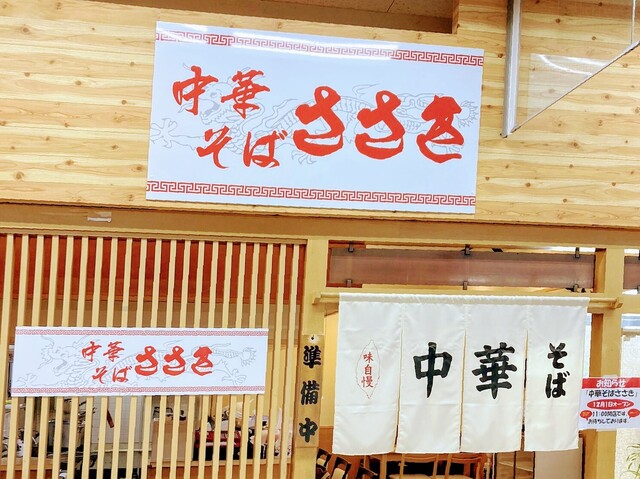 中華
そば
ささき
中華
そば
ささき
準備中
味自慢
中華そば
お知らせ
「中華そばささき」
12月1日オープン
11:00開店です
お待ちしております。